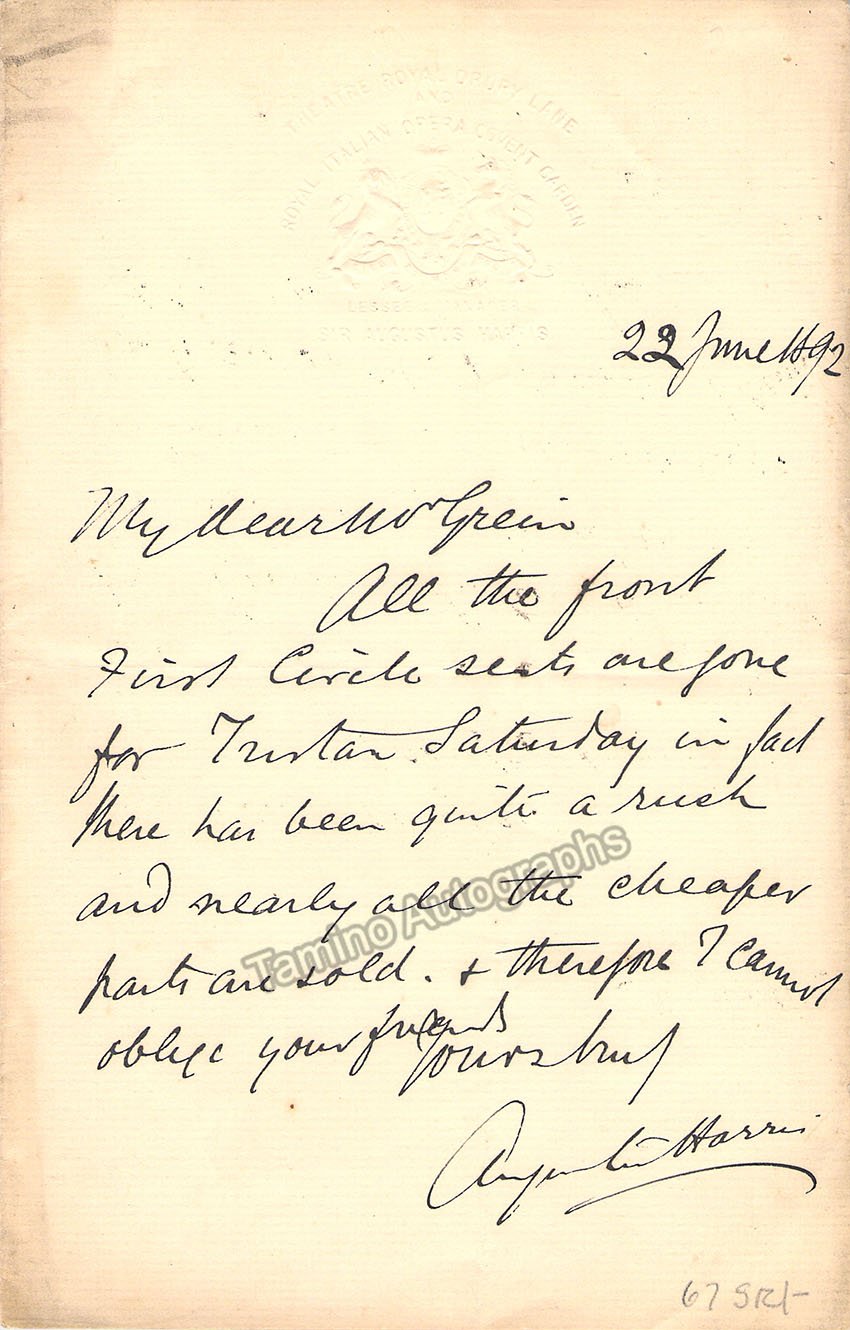 THEATRE ROYAL DRURY LANE
AND
ROYAL ITALIAN OPERA COVENT GARDEN
LESSEE & MANAGER
SIR AUGUSTUS HARRIS
22 June 1892
My dear Mr Grein
All the front
First Circle seats are gone
for Tristan Saturday in fact
there has been quite a rush
and nearly all the cheaper
parts are sold. & therefore I cannot
oblige your friends
Yours truly
Augustus Harris
Tamino Autographs
67